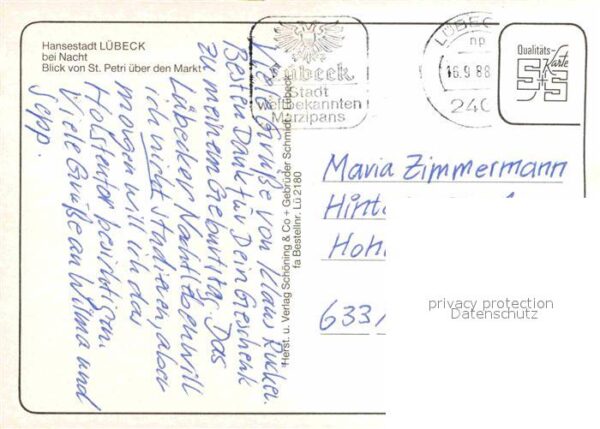 Hansestadt LÜBECK
bei Nacht
Blick von St. Petri über den Markt
Lübeck
Stadt
weltbekannten
Marzipans
LÜBECK
np
16.9.88
240
Qualitäts-
Karte
Viele Grüße von Klaus
Besten Dank für Dein Geschenk
zu meinem Geburtstag. Das
Lübecker Nachtleben will
ich nicht studieren, aber
morgen will ich das
Holstentor besichtigen.
Viele Grüße an Wilma und
Sepp.
Herst. u. Verlag Schöning & Co + Gebrüder Schmidt, Lübeck
fa Bestellnr. Lü 2180
Maria Zimmermann
Hint
Hoh
633
privacy protection
Datenschutz